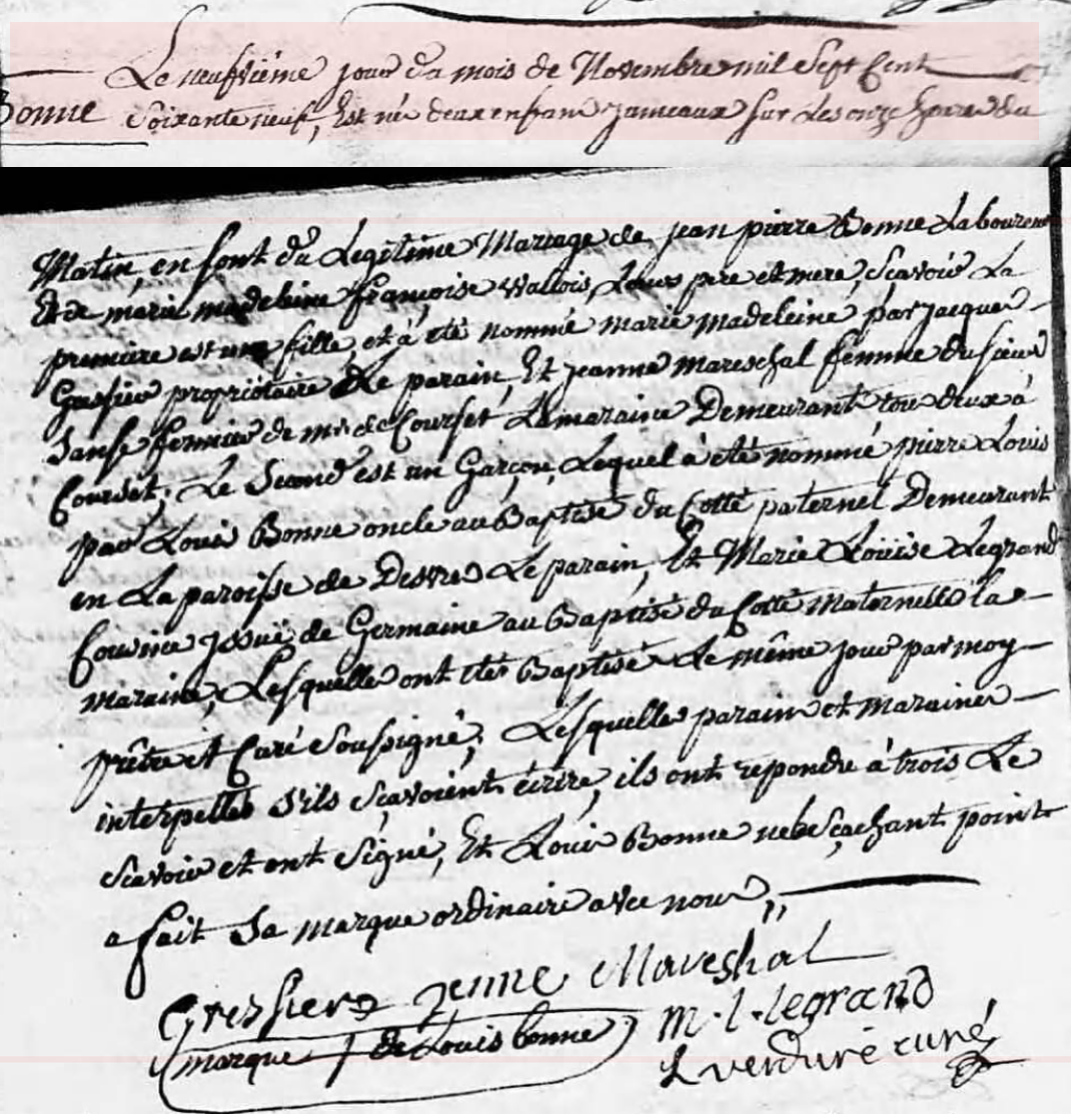 Le neufvième jour du mois de Novembre mil Sept Cent
Bonne
Soixante neuf, Est née deux enfans jumeaux sur Les onze heure du
Matin, en sont du Legitime Mariage de jean pierre Bonne Laboureur
Et de marie madeleine françoise Wallois, Leurs pere et mere, Scavoir La
premiere est une fille, et à été nommé marie madeleine par jacque
Gressier propriétaire Le parain, Et jeanne mareschal femme du sieur
Sanse fermier de mr. de Courset, La maraine Demeurant tou deux à
Courset; Le Second est un Garçon, Lequel à été nommé pierre Louis
par Louis Bonne oncle au Baptisé du Cotté paternel Demeurant
en La paroisse de Desvres Le parain, Et Marie Loüise Legrand
Cousine jssuë de Germaine au Baptisé du Cotté Maternelle la
maraine, Lesquelle ont étés Baptisé Le même jour par moy
prêtre et Curé Soussigné; Lesquelles parain et maraines
interpellés S'ils Scavoient écrire, ils ont repondre à trois Le
Scavoir et ont Signé, Et Louis Bonne ne le Scachant point
a fait Sa marque ordinaire avec nous,,
Gressier jenne Mareshal
marque de Louis bonne
m. l. legrand
L verduré curé